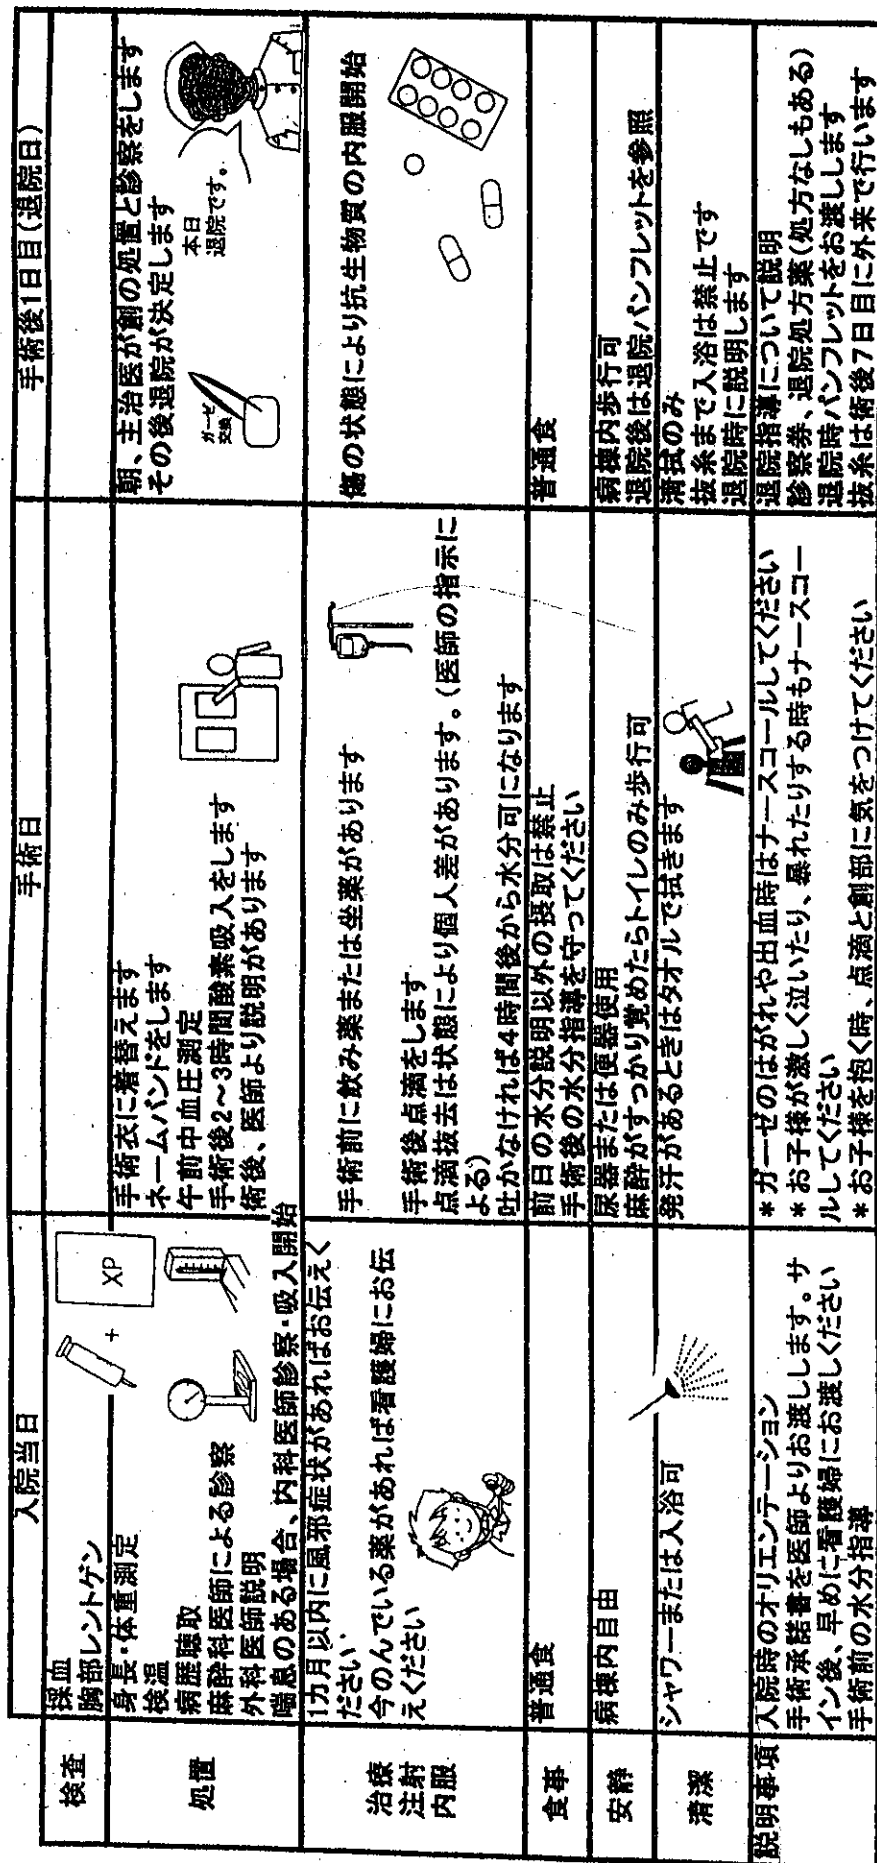 入院当日
手術日
手術後1日目(退院日)
検査
採血
胸部レントゲン
+
XP
処置
身長・体重測定
検温
病歴聴取
麻酔科医師による診察
外科医師説明
喘息のある場合、内科医師診察・吸入開始
手術衣に着替えます
ネームバンドをします
午前中血圧測定
手術後2〜3時間酸素吸入をします
術後、医師より説明があります
朝、主治医が創の処置と診察をします
その後退院が決定します
ガーゼ
交換
本日
退院です。
治療
注射
内服
1カ月以内に風邪症状があればお伝えく
ださい
今のんでいる薬があれば看護婦にお伝
えください
手術前に飲み薬または坐薬があります
手術後点滴をします
点滴抜去は状態により個人差があります。(医師の指示に
よる)
吐かなければ4時間後から水分可になります
傷の状態により抗生物質の内服開始
食事
普通食
前日の水分説明以外の摂取は禁止
手術後の水分指導を守ってください
普通食
安静
病棟内自由
尿器または便器使用
麻酔がすっかり覚めたらトイレのみ歩行可
病棟内歩行可
退院後は退院パンフレットを参照
清潔
シャワーまたは入浴可
発汗があるときはタオルで拭きます
清拭のみ
抜糸まで入浴は禁止です
退院時に説明します
説明事項
入院時のオリエンテーション
手術承諾書を医師よりお渡しします。サ
イン後、早めに看護婦にお渡しください
手術前の水分指導
*ガーゼのはがれや出血時はナースコールしてください
*お子様が激しく泣いたり、暴れたりする時もナースコー
ルしてください
*お子様を抱く時、点滴と創部に気をつけてください
退院指導について説明
診察券、退院処方薬(処方なしもある)
退院時パンフレットをお渡しします
抜糸は術後7日目に外来で行います